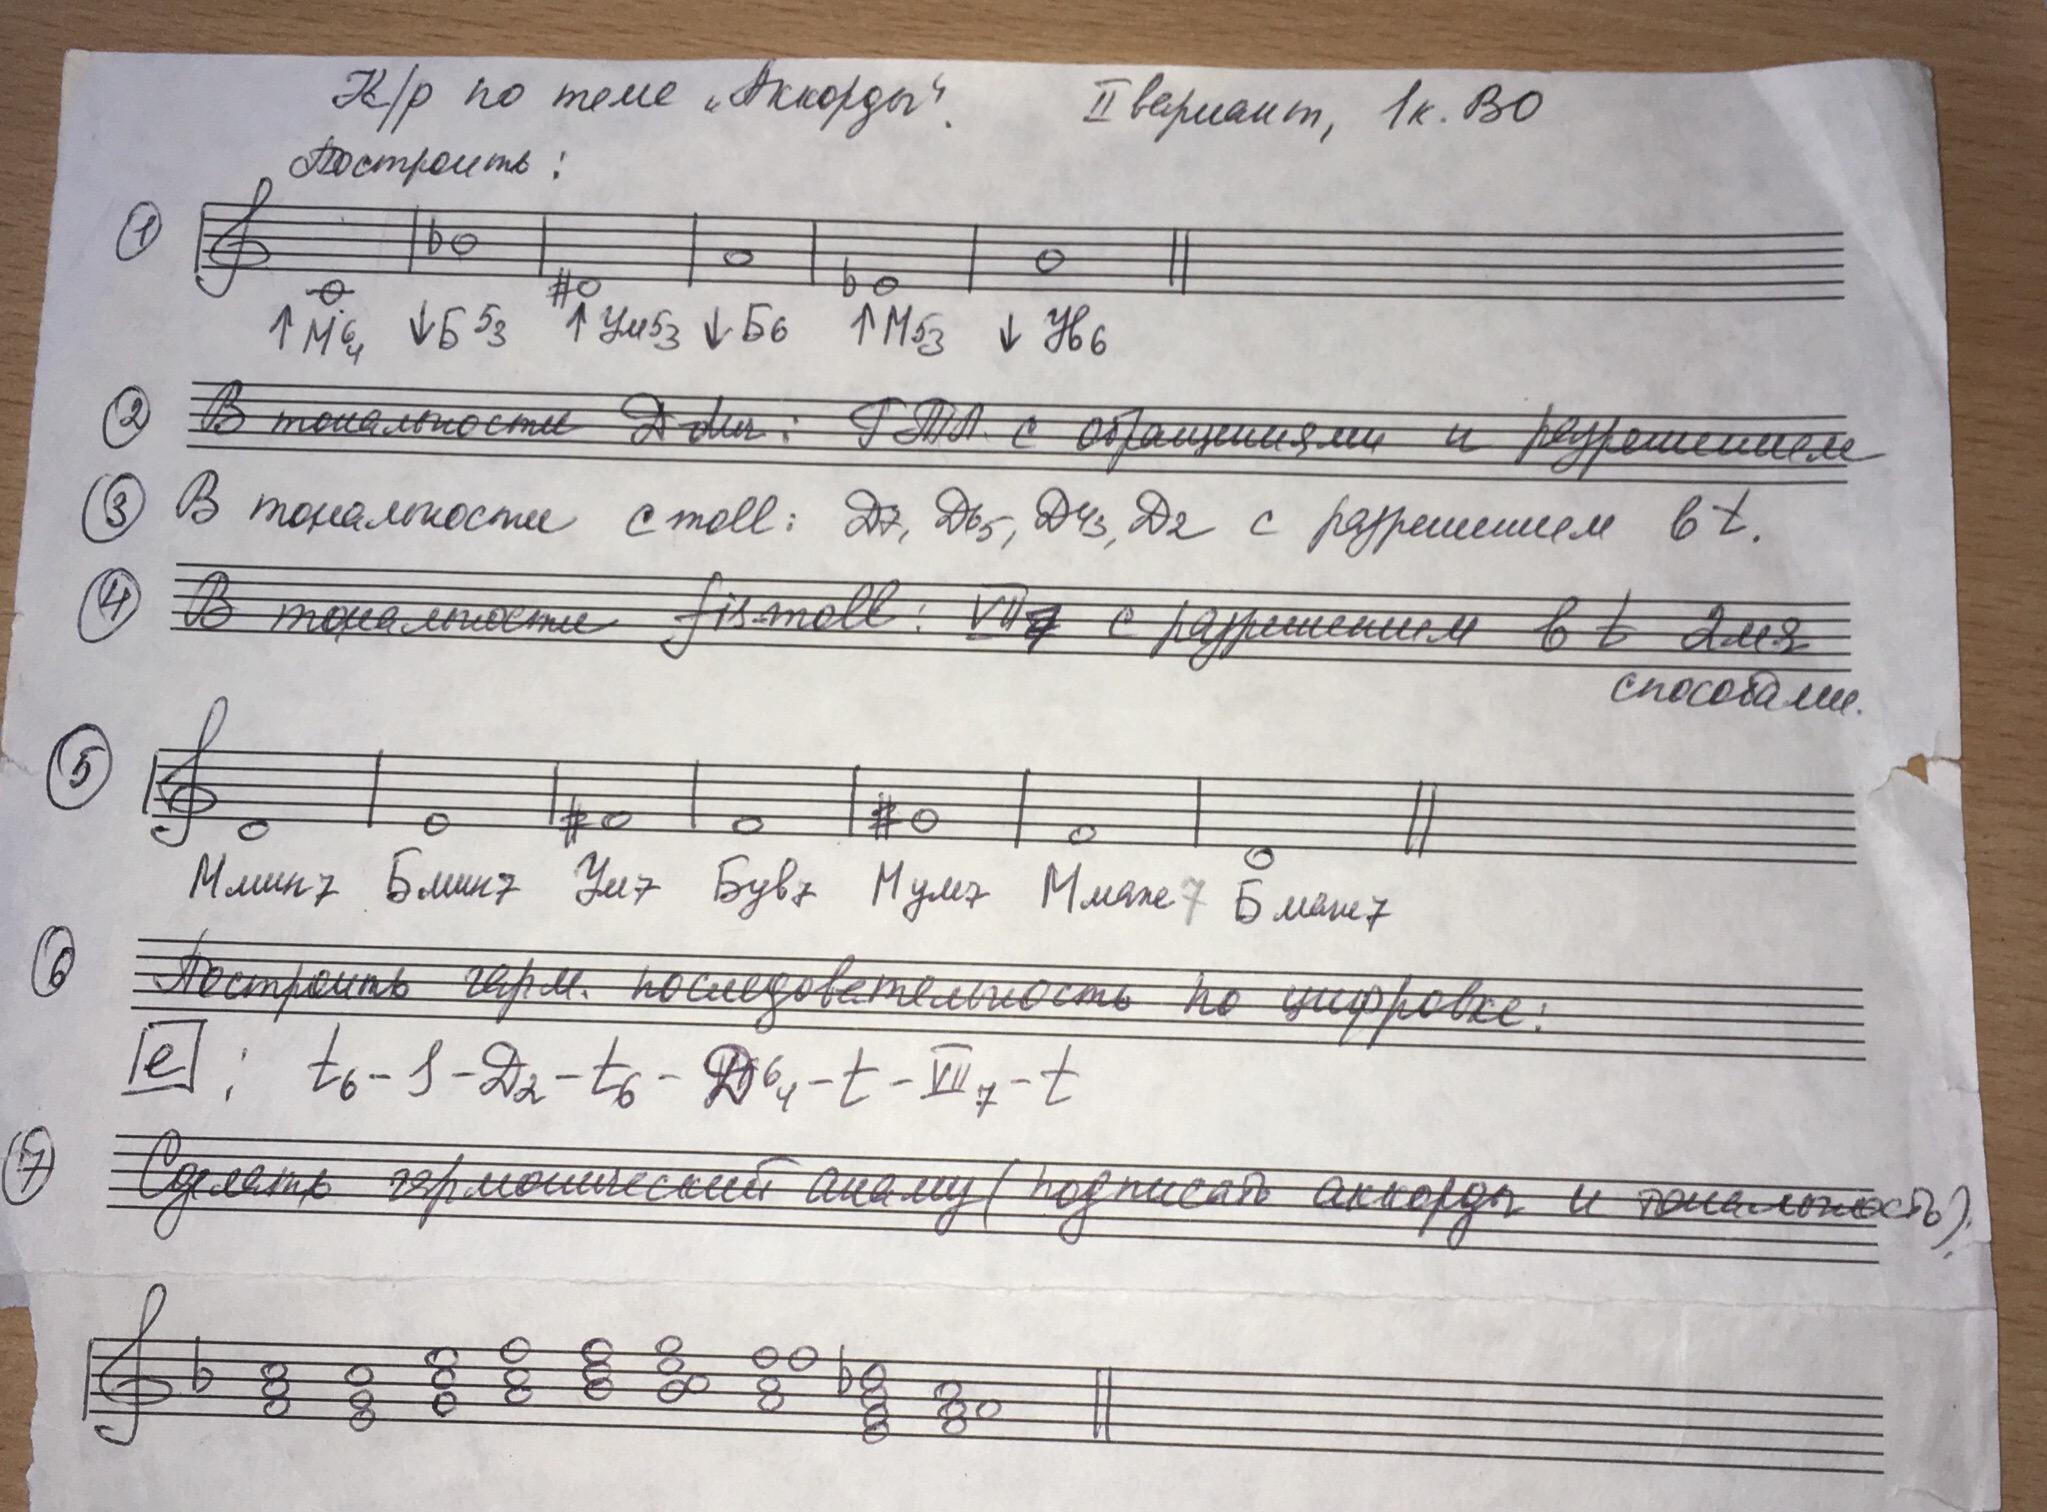 К/р по теме „Аккорды". II вариант, 1к. ВО
Построить:
1
↑М6/4 ↓Б5/3 ↑Ум5/3 ↓Б6 ↑М5/3 ↓Ув6
2 В тональности D dur: ГТЛ с обращениями и разрешением
3 В тональности c moll: Д7, Д6/5, Д4/3, Д2 с разрешением в t.
4 В тональности fis-moll: VII7 с разрешением в t 2мя
способами.
5
Ммин7 Бмин7 Ум7 Був7 Мум7 Ммаж7 Бмаж7
6 Построить гарм. последовательность по цифровке:
e: t6 – S – Д2 – t6 – Д6/4 – t – VII7 – t
7 Сделать гармонический анализ (подписать аккорды и тональность).